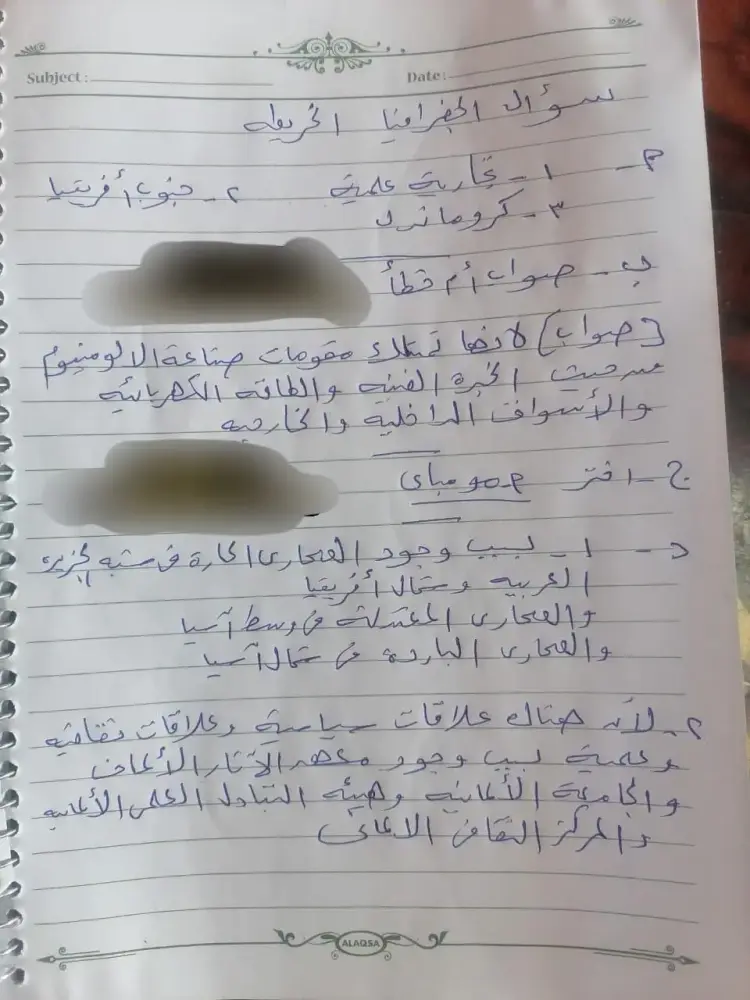 Subject:
Date:
سؤال الجغرافيا الخريطه
م- ١- تجارية علمية ٢- جنوب أفريقيا
٣- كروماندل
ب- صواب أم خطأ
[صواب] لانها تمتلك مقومات صناعة الالومنيوم
من حيث الخبرة الفنيه والطاقه الكهربائيه
والأسواق الداخلية والخارجيه
ج- اختر مومباى
د- ١- بسبب وجود الصحارى الحارة فى شبه الجزيره
العربيه وشمال أفريقيا
والصحارى المعتدلة فى وسط آسيا
والصحارى الباردة فى شمال آسيا
٢- لأنه هناك علاقات سياسية وعلاقات ثقافيه
وعلمية بسبب وجود معهد الآثار الألمانى
والجامعة الألمانيه وهيئه التبادل العلمى الألمانيه
والمركز الثقافى الالمانى
ALAQSA